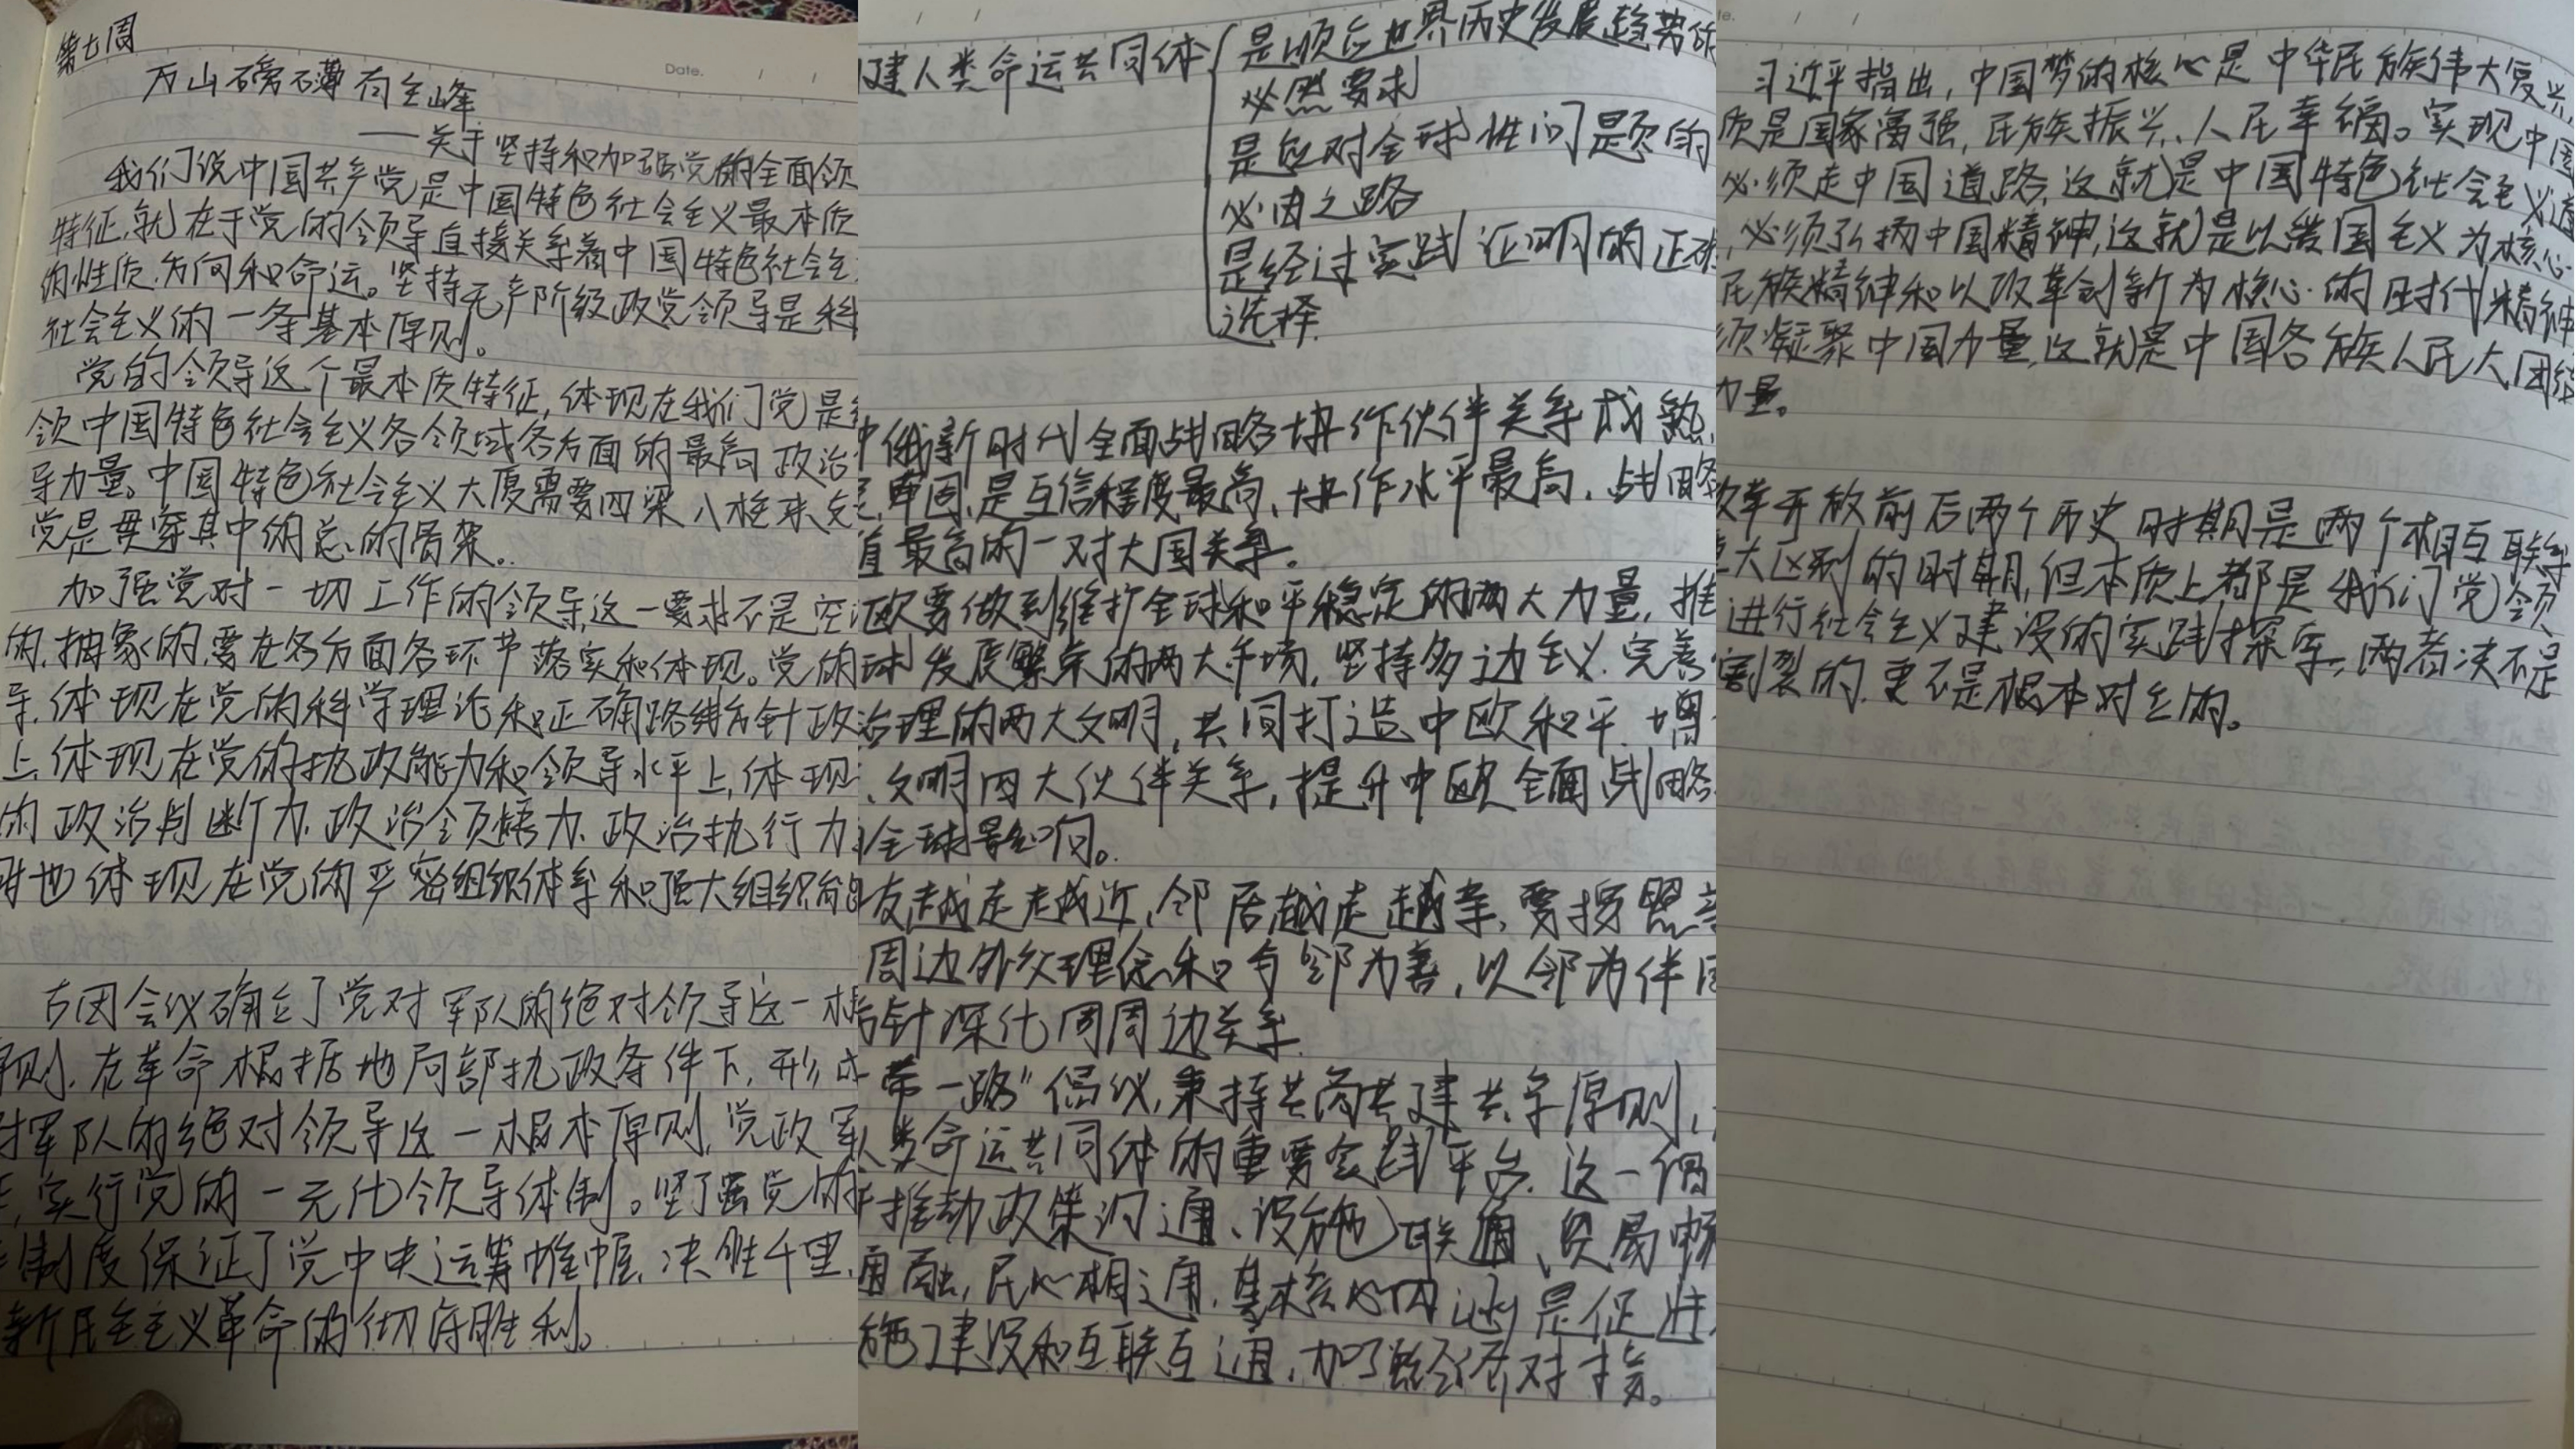 第七周
万山磅礴有主峰
——关于坚持和加强党的全面领
我们说中国共产党是中国特色社会主义最本质
特征,就在于党的领导直接关系着中国特色社会主
的性质.方向和命运。坚持无产阶级政党领导是科
社会主义的一条基本原则。
党的领导这个最本质特征,体现在我们党是
领中国特色社会主义各领域各方面的最高政治
导力量。中国特色社会主义大厦需要四梁八柱来支
党是贯穿其中的总的骨架。
加强党对一切工作的领导,这一要求不是空
的.抽象的,要在各方面各环节落实和体现。党的
导.体现在党的科学理论和正确路线方针政
上,体现在党的执政能力和领导水平上,体现
的政治判断力.政治领悟力.政治执行力
地体现在党的严密组织体系和强大组织能
古田会议确立了党对军队的绝对领导这一根
原则.在革命根据地局部执政条件下,形成
对军队的绝对领导这一根本原则,党政军
,实行党的一元化领导体制。坚强党的
制度保证了党中央运筹帷幄.决胜千里.
新民主主义革命的彻底胜利。
建人类命运共同体
是顺应世界历史发展趋势的
必然要求
是应对全球性问题的
必由之路
是经过实践证明的正确
选择.
中俄新时代全面战略协作伙伴关系成熟.
牢固,是互信程度最高、协作水平最高、战略
值最高的一对大国关系。
欧要做到维护全球和平稳定的两大力量,推
球发展繁荣的两大市场,坚持多边主义.完善
治理的两大文明,共同打造中欧和平.增
、文明四大伙伴关系,提升中欧全面战略
全球影响。
友越走越近,邻居越走越亲,要按照
周边外交理念和与邻为善,以邻为伴
方针深化同周边关系.
带一路"倡议,秉持共商共建共享原则,
人类命运共同体的重要实践平台.这一倡
推动政策沟通、设施联通、贸易畅
通融,民心相通,其核心内涵是促进
施建设和互联互通,加强经济对接。
习近平指出,中国梦的核心是中华民族伟大复兴,
质是国家富强,民族振兴、人民幸福。实现中国
必须走中国道路,这就是中国特色社会主义道
,必须弘扬中国精神,这就是以爱国主义为核心
民族精神和以改革创新为核心的时代精神
须凝聚中国力量,这就是中国各族人民大团结
力量。
改革开放前后两个历史时期是两个相互联系
大区别的时期,但本质上都是我们党领
进行社会主义建设的实践探索,两者决不是
割裂的.更不是根本对立的。